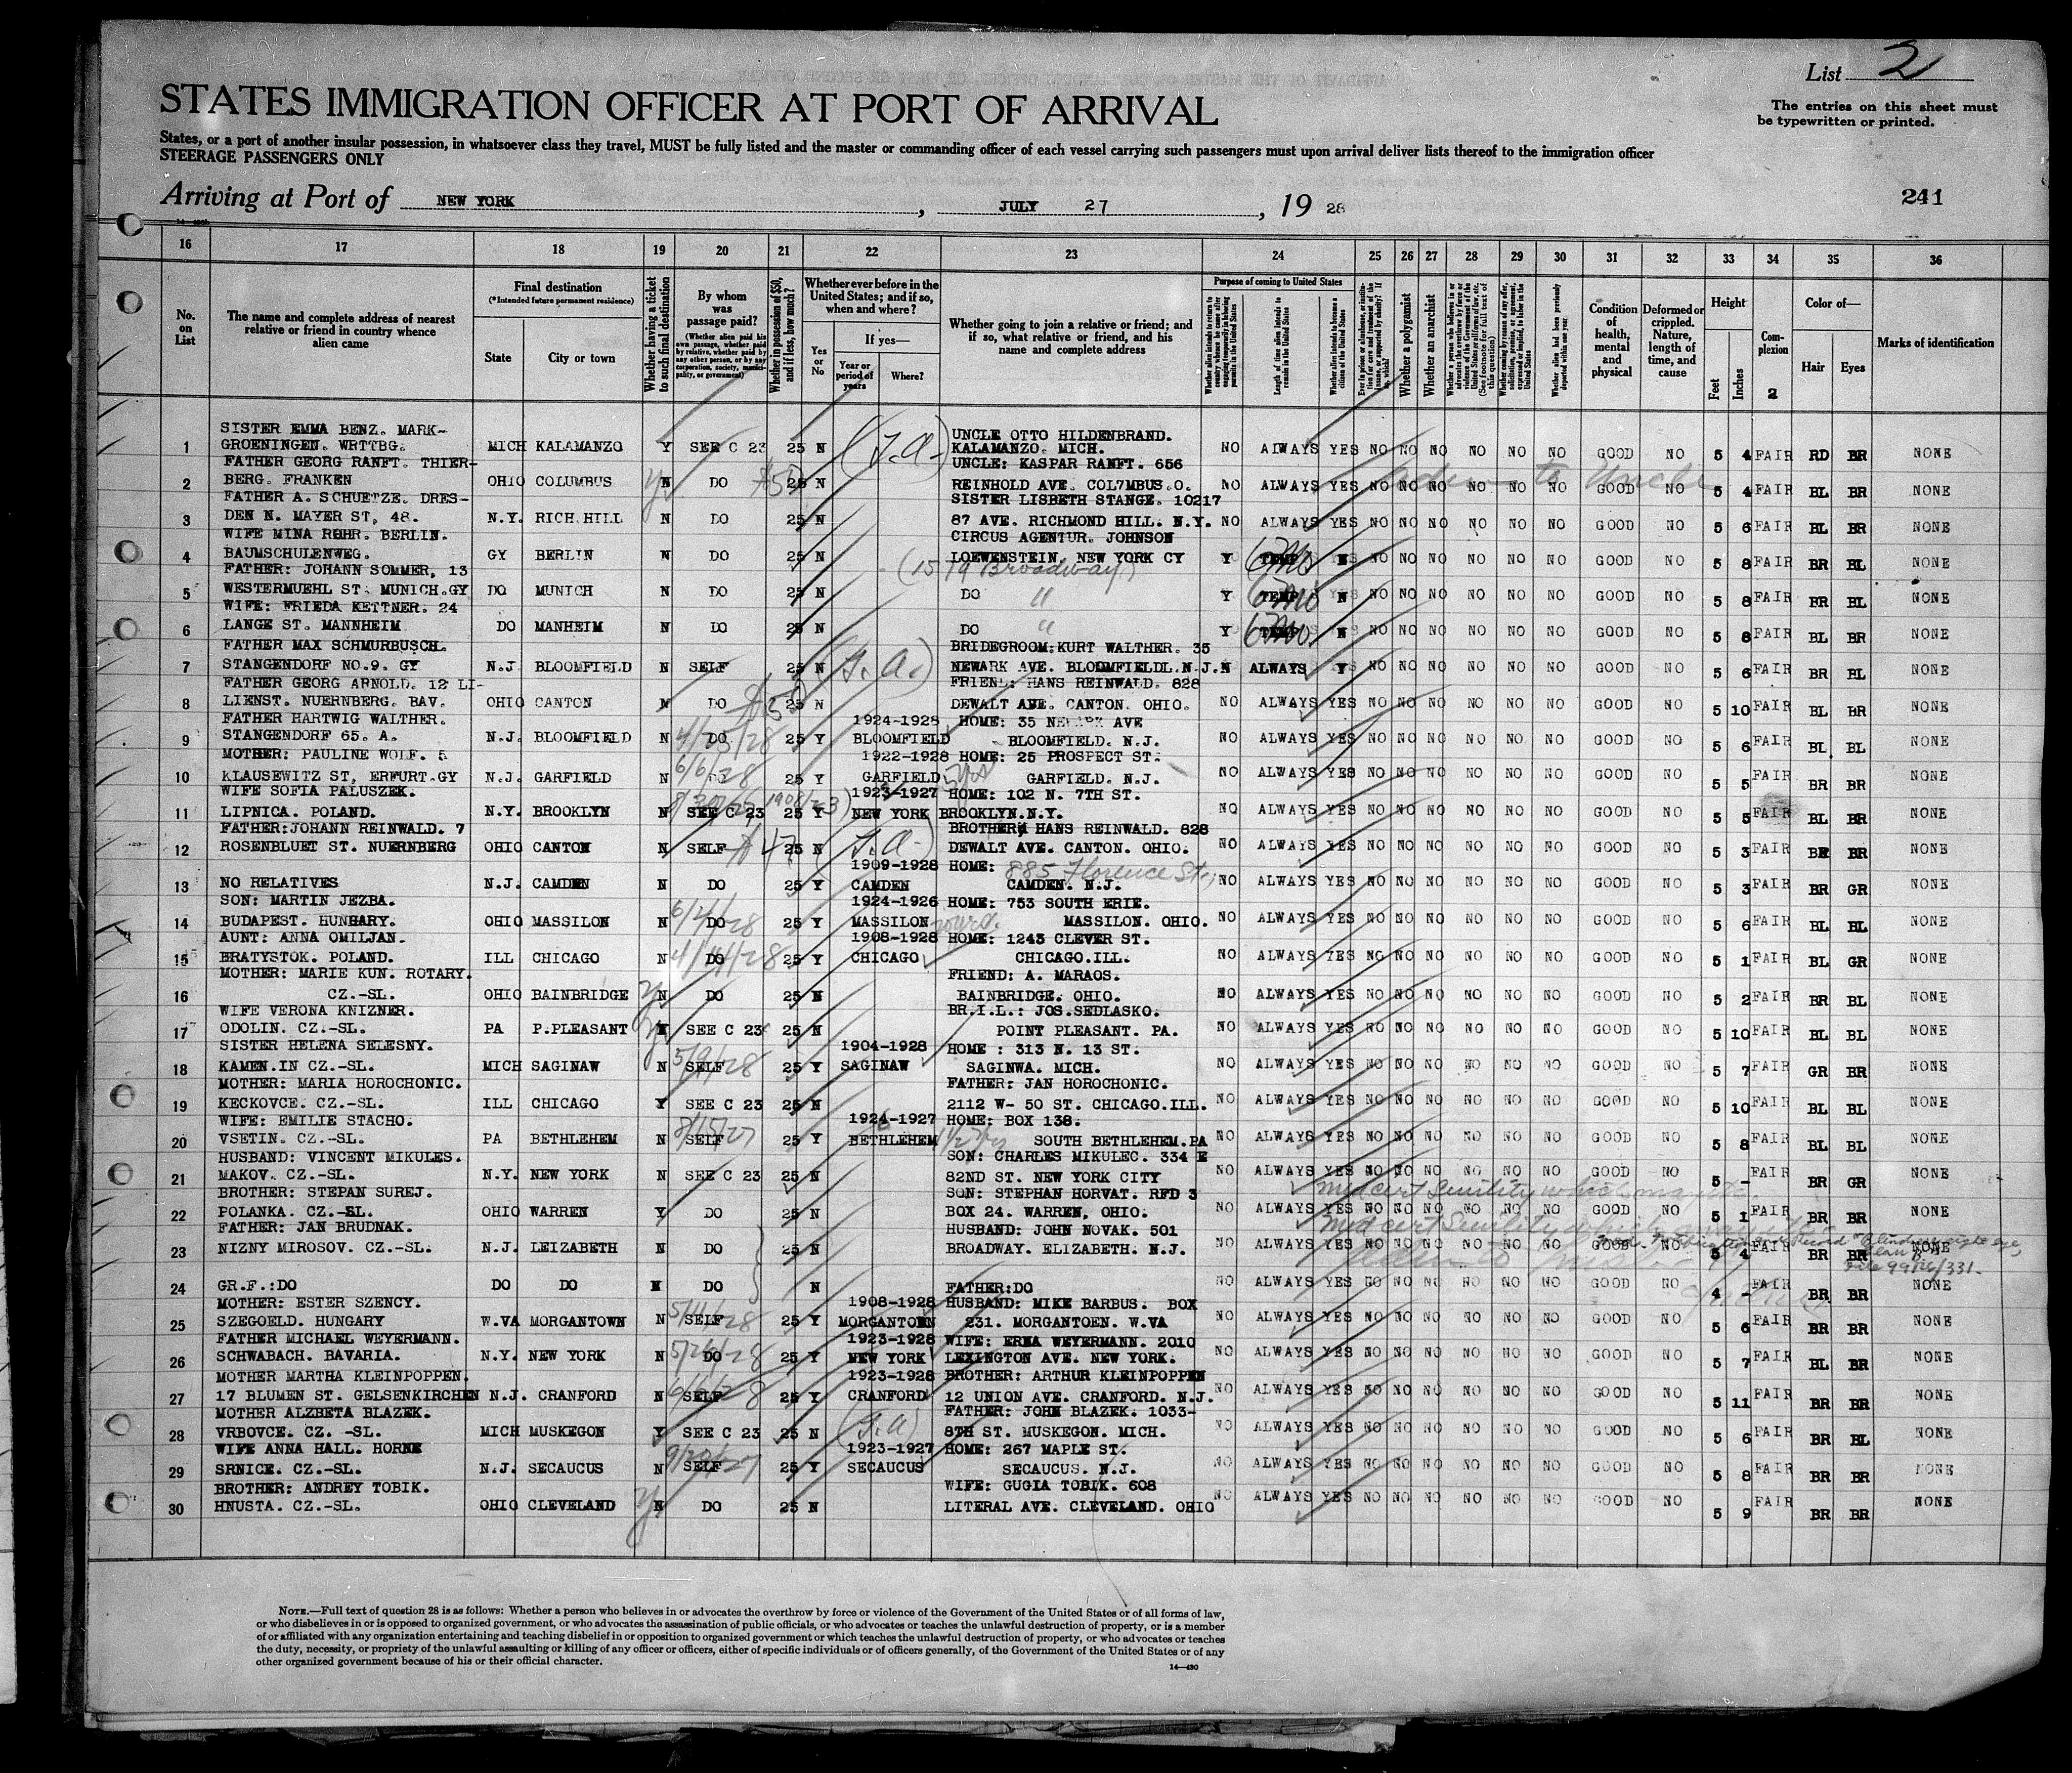 List 2
The entries on this sheet must
be typewritten or printed.
STATES IMMIGRATION OFFICER AT PORT OF ARRIVAL
States, or a port of another insular possession, in whatsoever class they travel, MUST be fully listed and the master or commanding officer of each vessel carrying such passengers must upon arrival deliver lists thereof to the immigration officer
STEERAGE PASSENGERS ONLY
Arriving at Port of NEW YORK, JULY 27, 19 28
241
16 17 18 19 20 21 22 23 24 25 26 27 28 29 30 31 32 33 34 35 36
No. on List
The name and complete address of nearest relative or friend in country whence alien came
Final destination
(*Intended future permanent residence)
State City or town
Whether having a ticket to such final destination
By whom was passage paid?
(Whether alien paid his own passage, whether paid by relative, whether paid by any other person, or by any corporation, society, municipality, or government)
Whether in possession of $50, and if less, how much?
Whether ever before in the United States; and if so, when and where?
Yes or No
If yes—
Year or period of years Where?
Whether going to join a relative or friend; and if so, what relative or friend, and his name and complete address
Purpose of coming to United States
Length of time alien intends to remain in the United States
Whether alien intends to become a citizen of the United States
Whether a polygamist
Whether an anarchist
Condition of health, mental and physical
Deformed or crippled. Nature, length of time, and cause
Height
Feet Inches
Complexion
2
Color of—
Hair Eyes
Marks of identification
SISTER EMMA BENZ. MARK- UNCLE OTTO HILDENBRAND.
1 GROENINGEN. WRTTBG. MICH KALAMANZO Y SEE C 23 25 N KALAMANZO. MICH. NO ALWAYS YES NO NO NO NO NO NO GOOD NO 5 4 FAIR RD BR NONE
FATHER GEORG RANFT. THIER- UNCLE: KASPAR RANFT. 656
2 BERG. FRANKEN OHIO COLUMBUS N DO 25 N REINHOLD AVE. COL7MBUS.O. NO ALWAYS YES NO NO NO NO NO NO GOOD NO 5 4 FAIR BL BR NONE
FATHER A. SCHUETZE. DRES- SISTER LISBETH STANGE. 10217
3 DEN N. MAYER ST, 48. N.Y. RICH.HILL N DO 25 N 87 AVE. RICHMOND HILL. N.Y. NO ALWAYS YES NO NO NO NO NO NO GOOD NO 5 6 FAIR BL BR NONE
WIFE MINA ROHR. BERLIN. CIRCUS AGENTUR. JOHNSON
4 BAUMSCHULENWEG. GY BERLIN N DO 25 N LOEWENSTEIN, NEW YORK CY Y TEMP 6 Mo N NO NO NO NO NO NO GOOD NO 5 8 FAIR BR BL NONE
(1579 Broadway)
FATHER: JOHANN SOMMER, 13
5 WESTERMUEHL ST. MUNICH.GY DO MUNICH N DO 25 N DO " Y TEMP 6 Mo N NO NO NO NO NO NO GOOD NO 5 8 FAIR BR BL NONE
WIFE: FRIEDA KETTNER. 24
6 LANGE ST. MANNHEIM DO MANHEIM N DO 25 N DO " Y TEMP 6 Mo N NO NO NO NO NO NO GOOD NO 5 8 FAIR BL BR NONE
FATHER MAX SCHMURBUSCH. BRIDEGROOM:KURT WALTHER. 35
7 STANGENDORF NO.9. GY N.J. BLOOMFIELD N SELF 25 N NEWARK AVE. BLOOMFIELDL.N.J. N ALWAYS Y NO NO NO NO NO NO GOOD NO 5 6 FAIR BR BL NONE
FATHER GEORG ARNOLD. 12 LI- FRIEND: HANS REINWALD. 828
8 LIENST. NUERNBERG. BAV. OHIO CANTON N DO 25 N DEWALT AVE. CANTON. OHIO. NO ALWAYS YES NO NO NO NO NO NO GOOD NO 5 10 FAIR BL BR NONE
FATHER HARTWIG WALTHER. 1924-1928 HOME: 35 NEWARK AVE
9 STANGENDORF 65. A. N.J. BLOOMFIELD N DO 25 Y BLOOMFIELD BLOOMFIELD. N.J. NO ALWAYS YES NO NO NO NO NO NO GOOD NO 5 6 FAIR BL BL NONE
MOTHER: PAULINE WOLF. 5 1922-1928 HOME: 25 PROSPECT ST.
10 KLAUSEWITZ ST, ERFURT.GY N.J. GARFIELD N 6/6/28 25 Y GARFIELD GARFIELD. N.J. NO ALWAYS YES NO NO NO NO NO NO GOOD NO 5 5 FAIR BR BR NONE
WIFE SOFIA PALUSZEK. 1923-1927 HOME: 102 N. 7TH ST.
11 LIPNICA. POLAND. N.Y. BROOKLYN N SEE C 23 25 Y NEW YORK BROOKLYN.N.Y. NO ALWAYS YES NO NO NO NO NO NO GOOD NO 5 5 FAIR BL BR NONE
FATHER:JOHANN REINWALD. 7 BROTHER: HANS REINWALD. 828
12 ROSENBLUET ST. NUERNBERG OHIO CANTON N SELF 25 N DEWALT AVE. CANTON. OHIO. NO ALWAYS YES NO NO NO NO NO NO GOOD NO 5 3 FAIR BR BR NONE
1909-1928 HOME: 885 Florence St.
13 NO RELATIVES N.J. CAMDEN N DO 25 Y CAMDEN CAMDEN. N.J. NO ALWAYS YES NO NO NO NO NO NO GOOD NO 5 3 FAIR BR GR NONE
SON: MARTIN JEZBA. 1924-1926 HOME: 753 SOUTH ERIE.
14 BUDAPEST. HUNGARY. OHIO MASSILON N DO 25 Y MASSILON MASSILON. OHIO. NO ALWAYS YES NO NO NO NO NO NO GOOD NO 5 6 FAIR BL BL NONE
AUNT: ANNA OMILJAN. 1908-1928 HOME: 1243 CLEVER ST.
15 BRATYSTOK. POLAND. ILL CHICAGO N DO 4/14/28 25 Y CHICAGO CHICAGO.ILL. NO ALWAYS YES NO NO NO NO NO NO GOOD NO 5 1 FAIR BL GR NONE
MOTHER: MARIE KUN. ROTARY. FRIEND: A. MARAOS.
16 CZ.-SL. OHIO BAINBRIDGE N DO 25 N BAINBRIDGE. OHIO. NO ALWAYS YES NO NO NO NO NO NO GOOD NO 5 2 FAIR BR BL NONE
WIFE VERONA KNIZNER. BR.I.L.: JOS.SEDLASKO.
17 ODOLIN. CZ.-SL. PA P.PLEASANT N SEE C 23 25 N POINT PLEASANT. PA. NO ALWAYS YES NO NO NO NO NO NO GOOD NO 5 10 FAIR BL BL NONE
SISTER HELENA SELESNY. 1904-1928 HOME : 313 N. 13 ST.
18 KAMEN.IN CZ.-SL. MICH SAGINAW N SELF 5/9/28 25 Y SAGINAW SAGINWA. MICH. NO ALWAYS YES NO NO NO NO NO NO GOOD NO 5 7 FAIR GR BR NONE
MOTHER: MARIA HOROCHONIC. FATHER: JAN HOROCHONIC.
19 KECKOVCE. CZ.-SL. ILL CHICAGO Y SEE C 23 25 N 2112 W- 50 ST. CHICAGO.ILL. NO ALWAYS YES NO NO NO NO NO NO GOOD NO 5 10 FAIR BL BL NONE
WIFE: EMILIE STACHO. 1924-1927 HOME: BOX 138.
20 VSETIN. CZ.-SL. PA BETHLEHEM N SELF 8/15/27 25 Y BETHLEHEM SOUTH BETHLEHEM.PA NO ALWAYS YES NO NO NO NO NO NO GOOD NO 5 8 FAIR BL BL NONE
HUSBAND: VINCENT MIKULES. SON: CHARLES MIKULEC. 334 E
21 MAKOV. CZ.-SL. N.Y. NEW YORK N SEE C 23 25 N 82ND ST. NEW YORK CITY NO ALWAYS YES NO NO NO NO NO NO GOOD NO 5 - FAIR BR GR NONE
BROTHER: STEPAN SUREJ. SON: STEPHAN HORVAT. RFD 3
22 POLANKA. CZ.-SL. OHIO WARREN Y DO 25 N BOX 24. WARREN, OHIO. NO ALWAYS YES NO NO NO NO NO NO GOOD NO 5 1 FAIR BR BR NONE
FATHER: JAN BRUDNAK. HUSBAND: JOHN NOVAK. 501
23 NIZNY MIROSOV. CZ.-SL. N.J. LEIZABETH N DO 25 N BROADWAY. ELIZABETH. N.J. NO ALWAYS YES NO NO NO NO NO NO GOOD NO 5 4 FAIR BR BR NONE
24 GR.F.:DO DO DO N DO N FATHER:DO NO ALWAYS YES NO NO NO NO NO NO GOOD NO 4 - FAIR BR BR NONE
MOTHER: ESTER SZENCY. 1908-1928 HUSBAND: MIKE BARBUS. BOX
25 SZEGOELD. HUNGARY W.VA MORGANTOWN N SELF 25 Y MORGANTOWN 231. MORGANTOEN. W.VA NO ALWAYS YES NO NO NO NO NO NO GOOD NO 5 6 FAIR BR BR NONE
FATHER MICHAEL WEYERMANN. 1923-1928 WIFE: ERNA WEYERMANN. 2010
26 SCHWABACH. BAVARIA. N.Y. NEW YORK N DO 25 Y NEW YORK LEXINGTON AVE. NEW YORK. NO ALWAYS YES NO NO NO NO NO NO GOOD NO 5 7 FAIR BL BR NONE
MOTHER MARTHA KLEINPOPPEN. 1923-1928 BROTHER: ARTHUR KLEINPOPPEN
27 17 BLUMEN ST. GELSENKIRCHEN N.J. CRANFORD N SELF 25 Y CRANFORD 12 UNION AVE. CRANFORD. N.J. NO ALWAYS YES NO NO NO NO NO NO GOOD NO 5 11 FAIR BR BR NONE
MOTHER ALZBETA BLAZEK. FATHER: JOHN BLAZEK. 1033-
28 VRBOVCE. CZ. -SL. MICH MUSKEGON Y SEE C 23 25 N 8TH ST. MUSKEGON. MICH. NO ALWAYS YES NO NO NO NO NO NO GOOD NO 5 6 FAIR BR BL NONE
WIFE ANNA HALL. HORNE 1923-1927 HOME: 267 MAPLE ST.
29 SRNICE. CZ.-SL. N.J. SECAUCUS N SELF 25 Y SECAUCUS SECAUCUS. N.J. NO ALWAYS YES NO NO NO NO NO NO GOOD NO 5 8 FAIR BR BR NONE
BROTHER: ANDREY TOBIK. WIFE: GUGIA TOBIK. 608
30 HNUSTA. CZ.-SL. OHIO CLEVELAND N DO 25 N LITERAL AVE. CLEVELAND. OHIO NO ALWAYS YES NO NO NO NO NO NO GOOD NO 5 9 FAIR BR BR NONE
NOTE.—Full text of question 28 is as follows: Whether a person who believes in or advocates the overthrow by force or violence of the Government of the United States or of all forms of law,
or who disbelieves in or is opposed to organized government, or who advocates the assassination of public officials, or who advocates or teaches the unlawful destruction of property, or is a member
of or affiliated with any organization entertaining and teaching disbelief in or opposition to organized government or which teaches the unlawful destruction of property, or who advocates or teaches
the duty, necessity, or propriety of the unlawful assaulting or killing of any officer or officers, either of specific individuals or of officers generally, of the Government of the United States or of any
other organized government because of his or their official character.
14—430